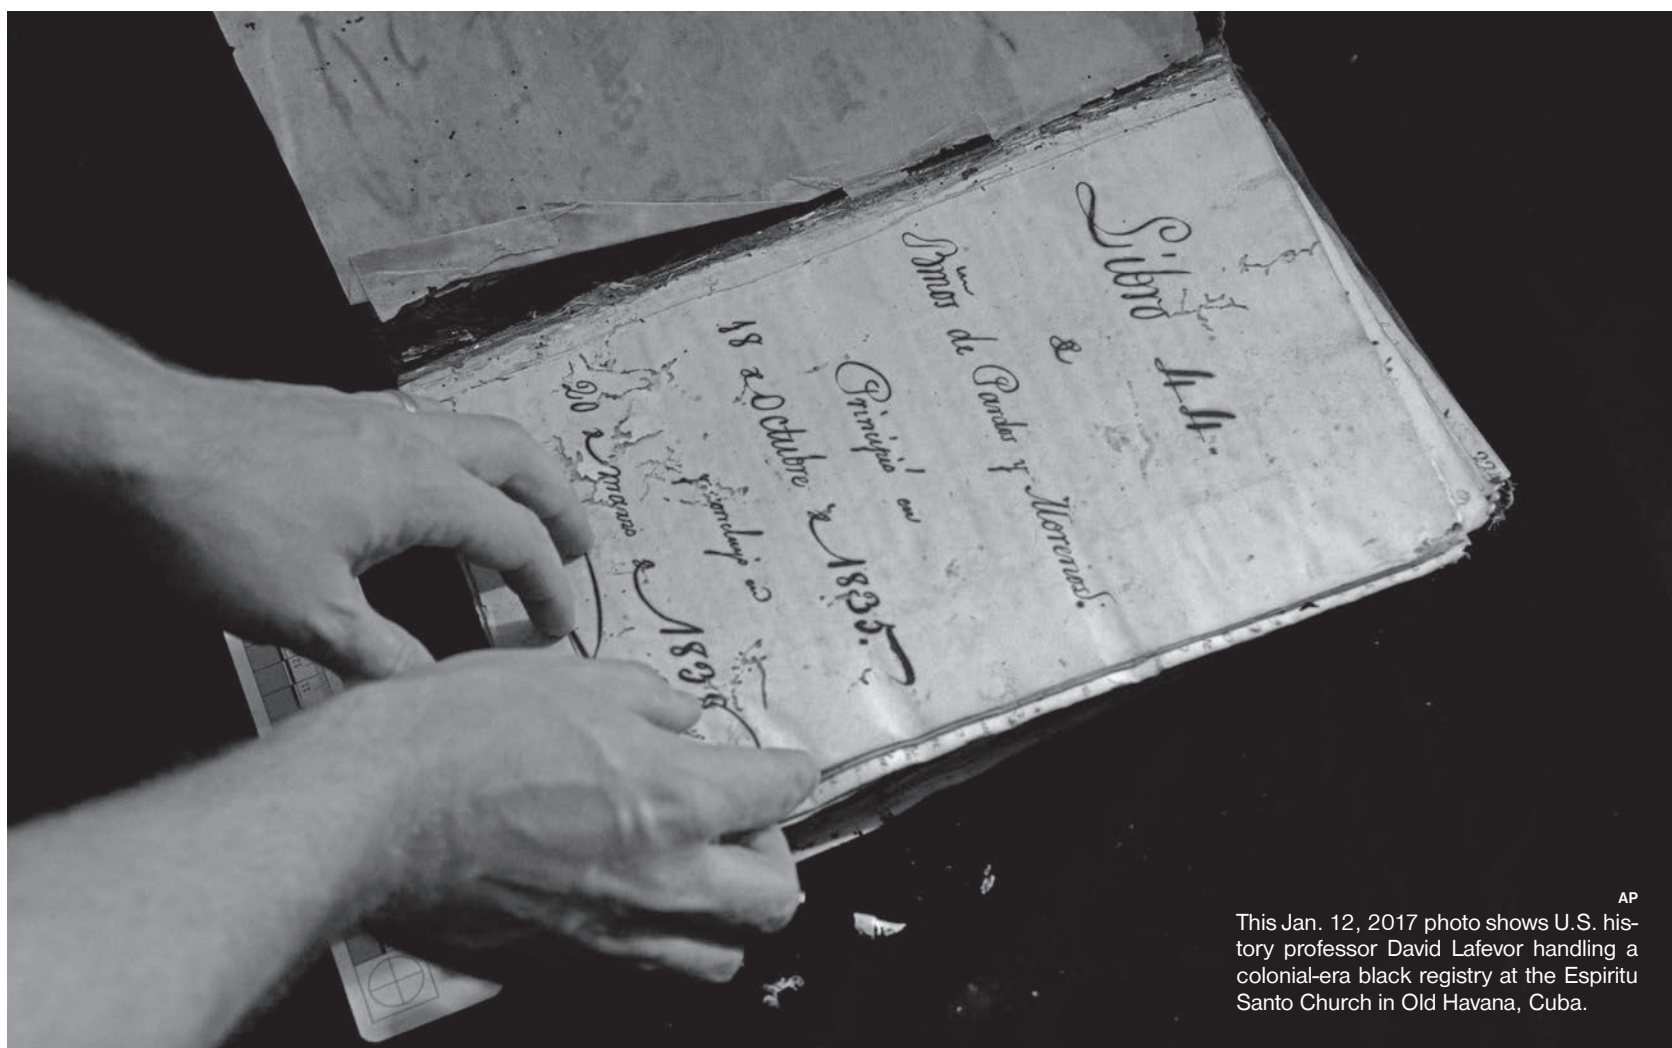 Libro 44.
de
Bmos de Pardos y Morenos.
Principió en
18 de Octubre de 1835.
Concluyó en
20 de marzo de 183
AP
This Jan. 12, 2017 photo shows U.S. his-
tory professor David Lafevor handling a
colonial-era black registry at the Espiritu
Santo Church in Old Havana, Cuba.